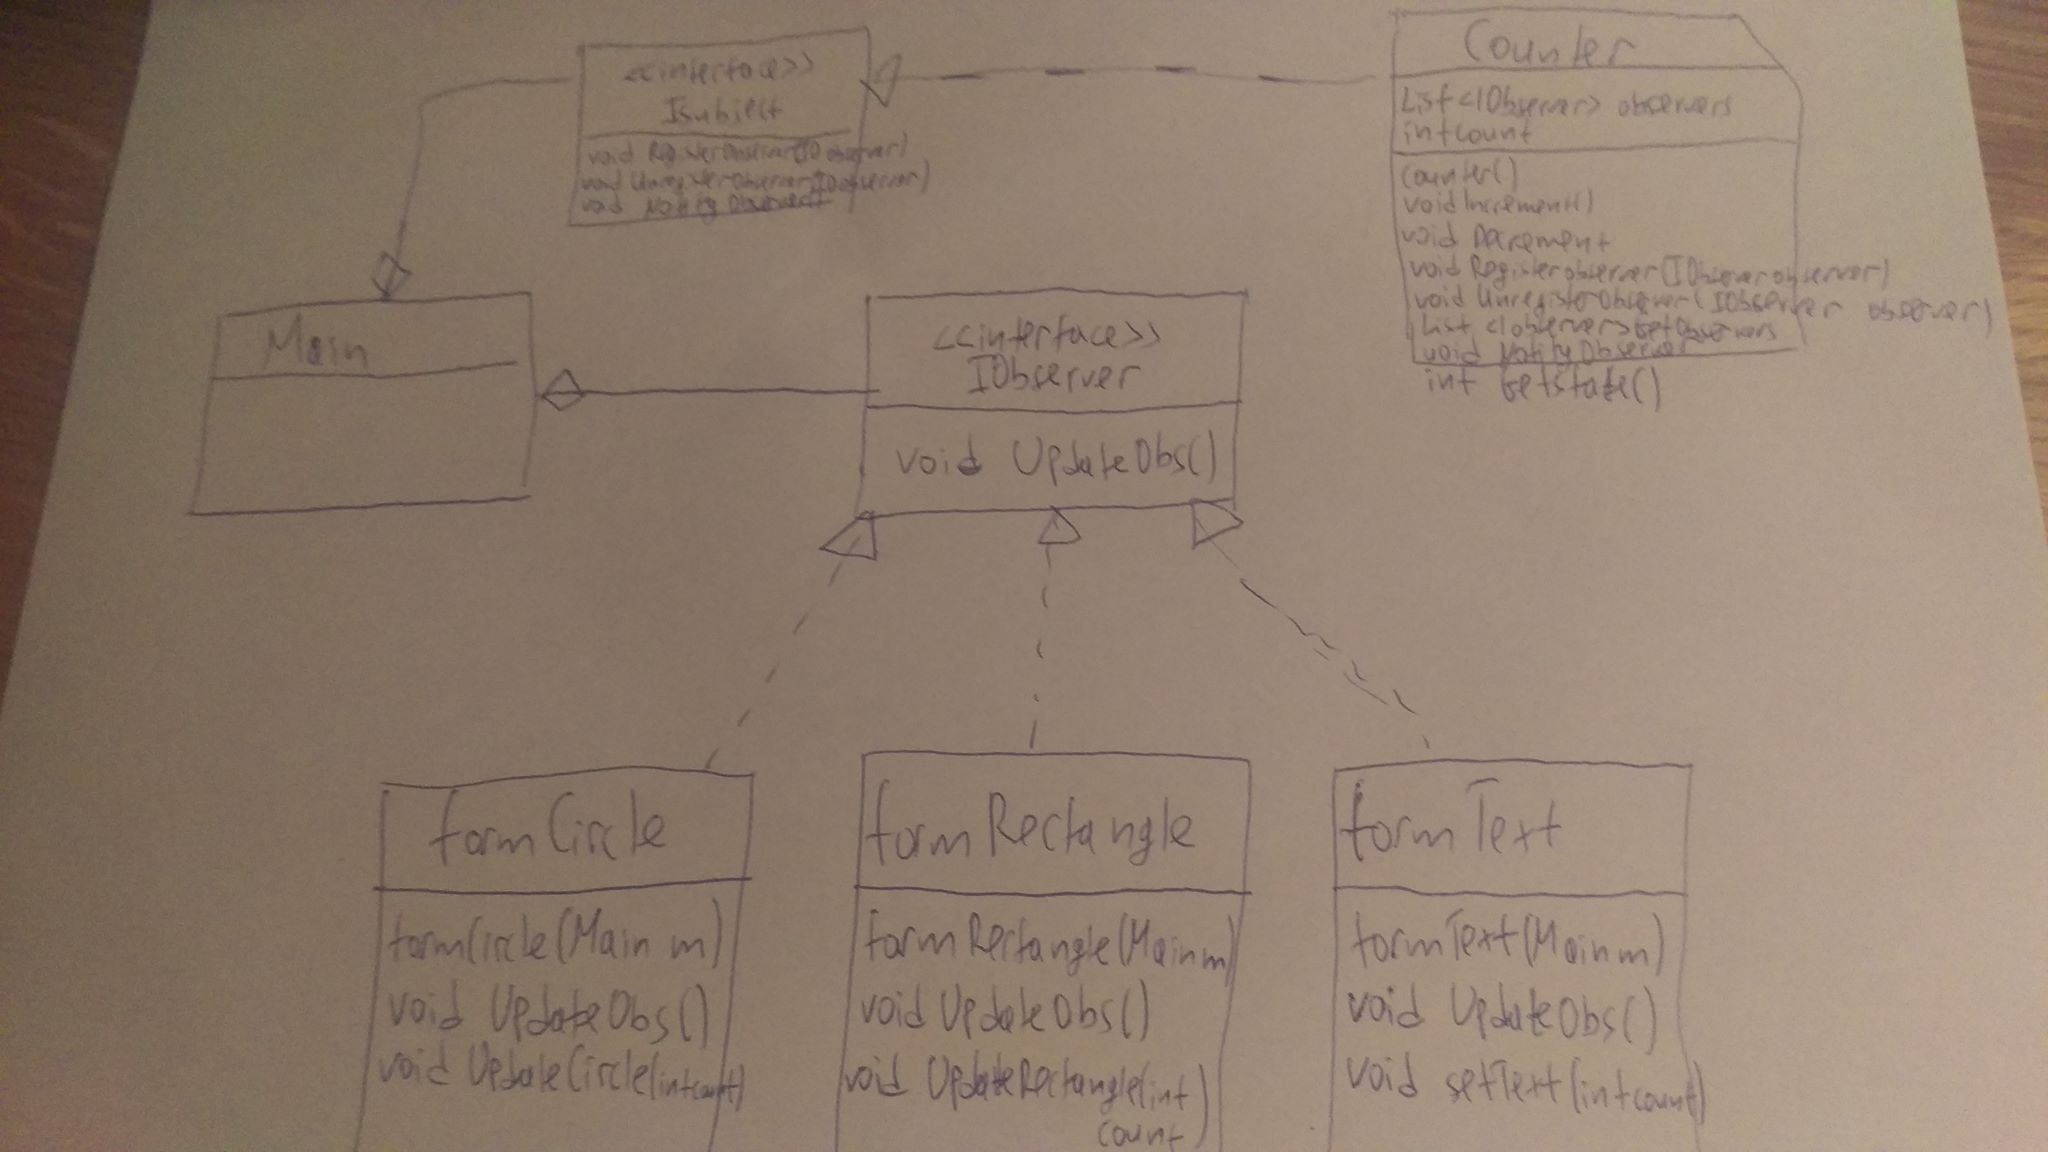 <<interface>>
Isubject
void RegisterObserver(IObserver)
void UnregisterObserver(IObserver)
void NotifyObserver
Counter
List <IObserver> observers
int count
Counter()
void Increment()
void Decrement
void Registerobserver(IObserver observer)
void UnregisterObserver(IObserver observer)
List <Iobserver> GetObservers
void NotifyObserver
int Getstate()
Main
<<interface>>
IObserver
void UpdateObs()
formCircle
formCircle(Main m)
void UpdateObs()
void UpdateCircle(int count)
formRectangle
formRectangle(Main m)
void UpdateObs()
void UpdateRectangle(int
count)
formText
formText(Main m)
void UpdateObs()
void setText(int count)